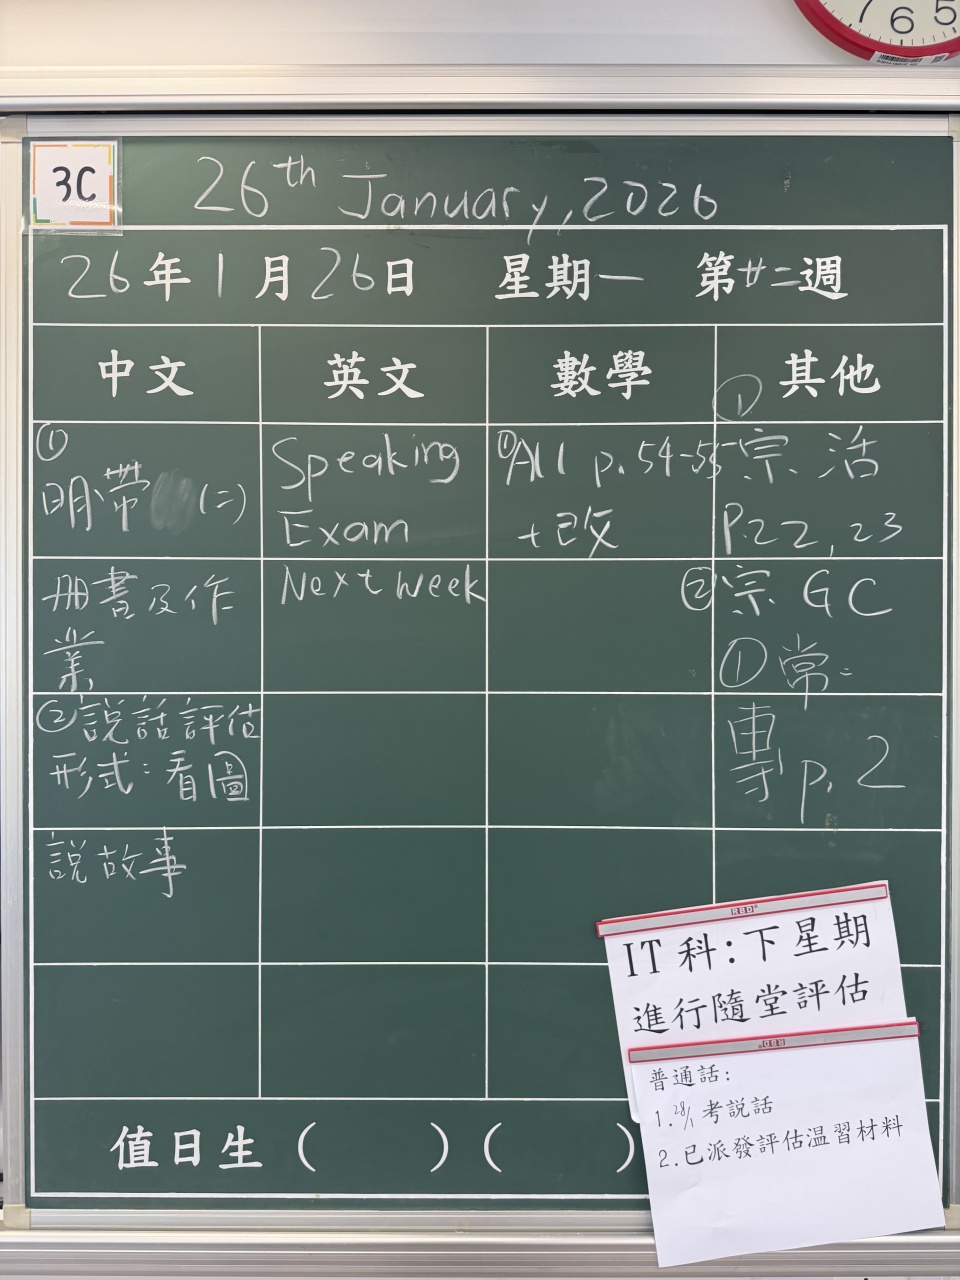 7 6 5
3C
26th January, 2026
26年1月26日 星期一 第廿二週
中文 英文 數學 其他
①
明帶 (二)
冊書及作
業
②說話評估
形式:看圖
說故事
Speaking
Exam
Next week
①All p.54-55
+改
①
宗活
P.22, 23
②宗 GC
①常=
專 p.2
值日生 ( ) ( )
RBD
IT科:下星期
進行隨堂評估
RBD
普通話:
1.28/1考説話
2.已派發評估温習材料